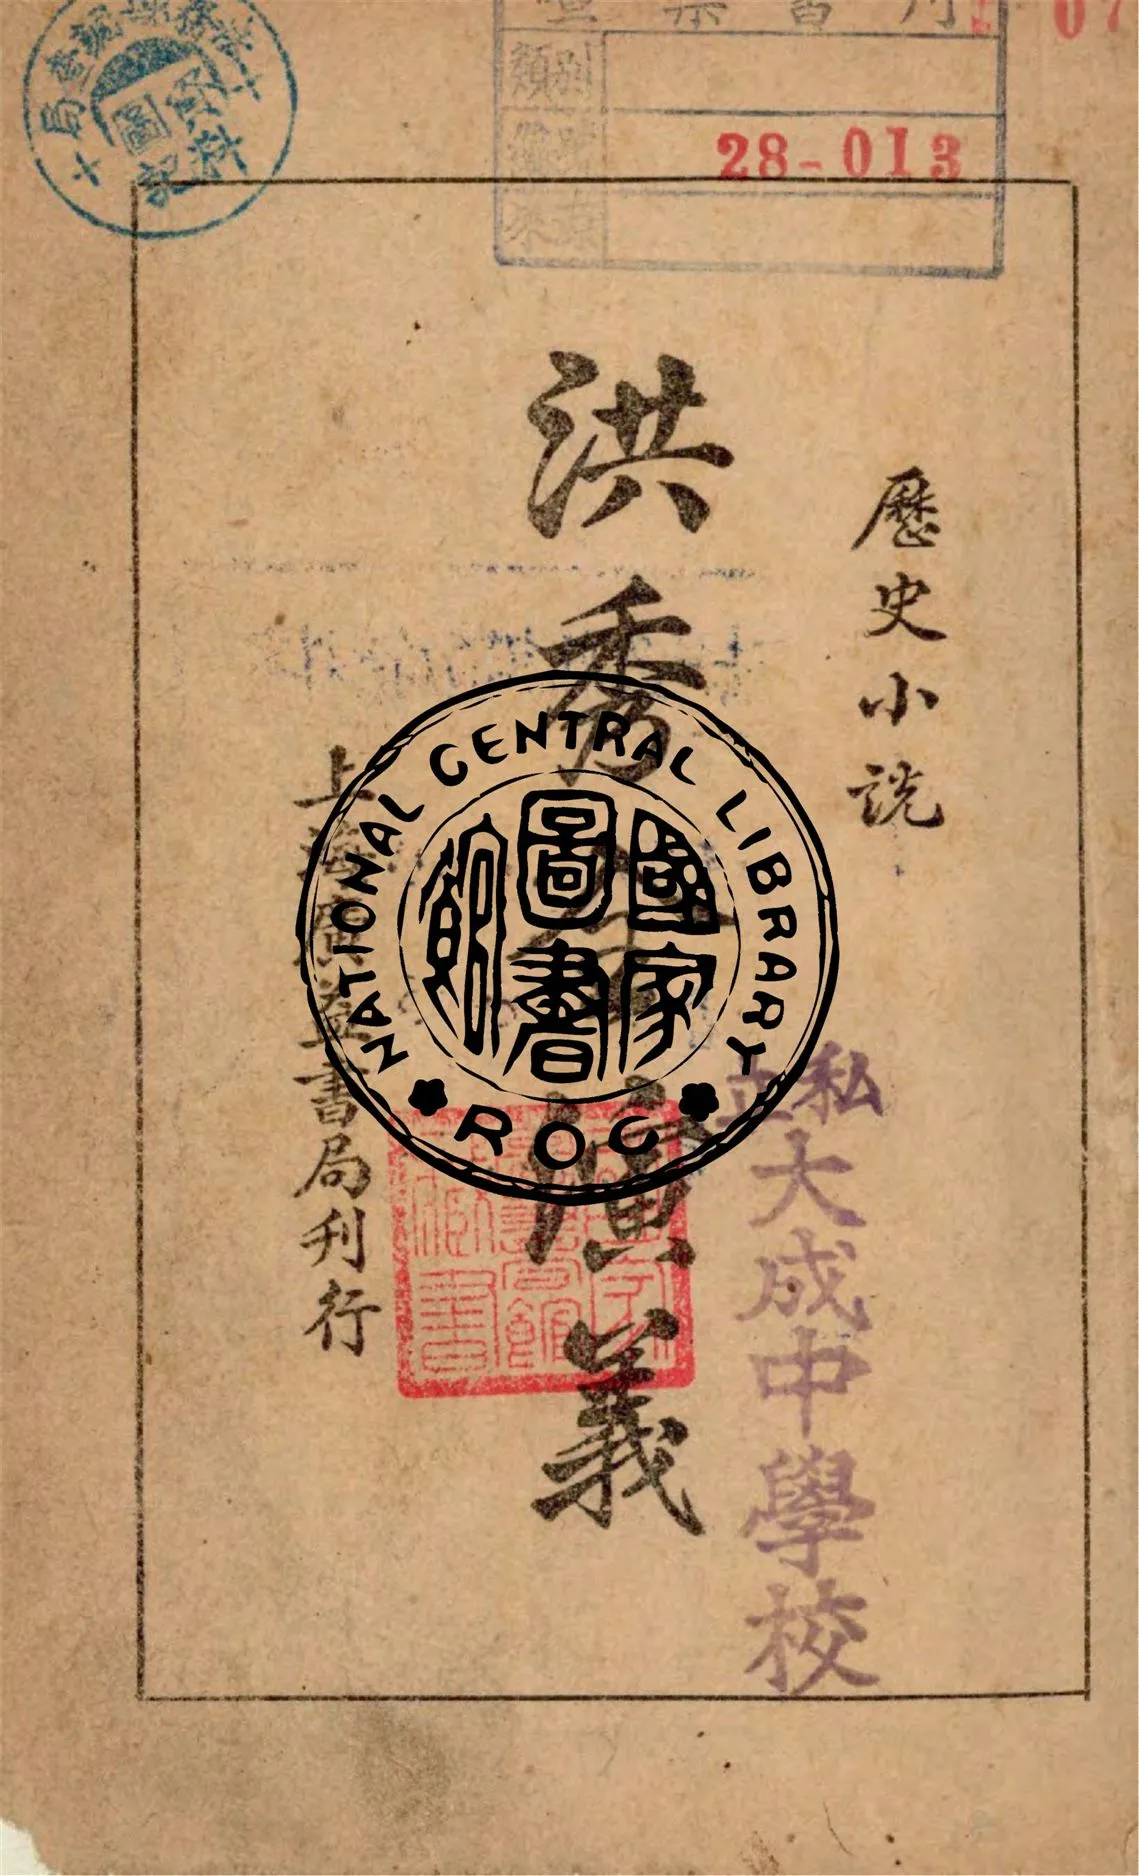 28-013
歷史小說
洪秀全演義
上海廣益書局刊行
私立
大成中學校
NATIONAL CENTRAL LIBRARY
國家圖書館
ROC